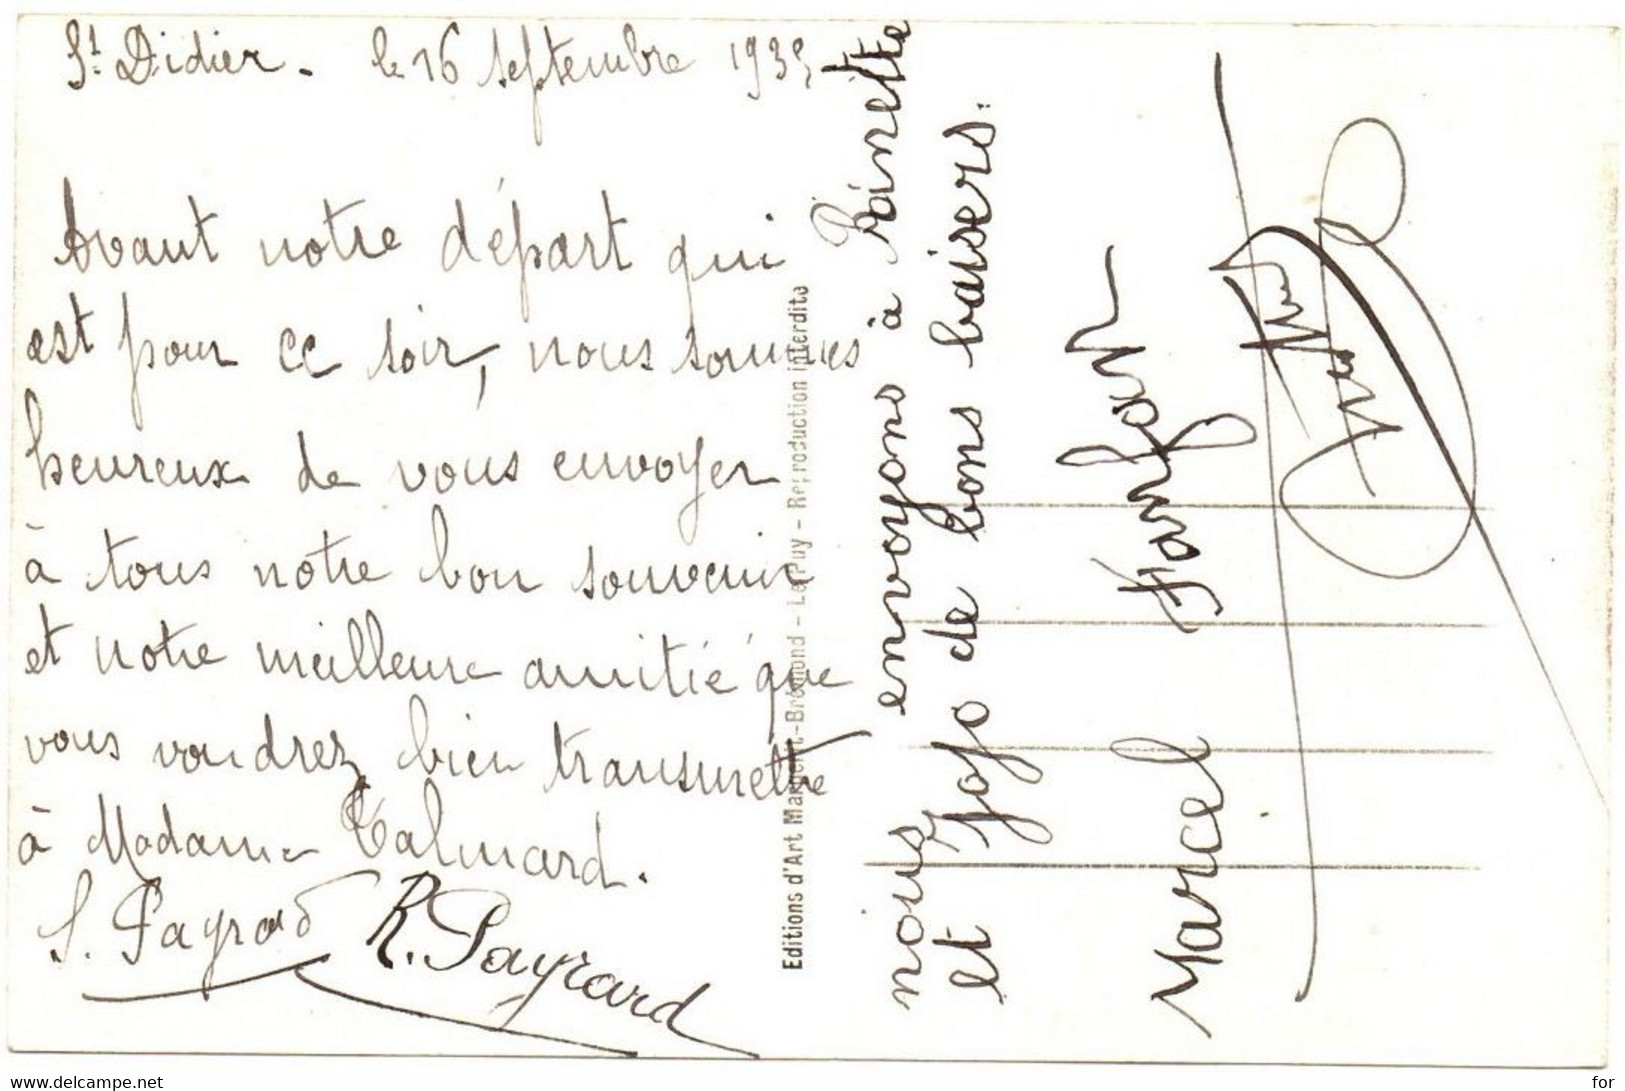 St Didier. le 16 septembre 193
Avant notre départ qui
est pour ce soir, nous sommes
heureux de vous envoyer
à tous notre bon souvenir
et notre meilleure amitié que
vous voudrez bien transmettre
à Madame Talmard.
S. Payrard R. Payrard
Editions d'Art Margerit-Brémond - Le Puy - Reproduction interdite
nous envoyons à Rainette
et Jojo de bons baisers.
Marcel
www.delcampe.net
for